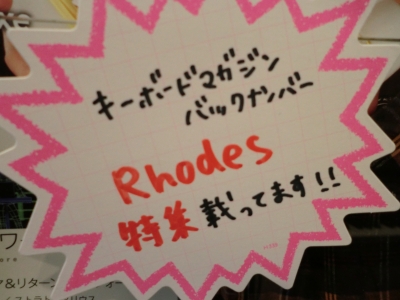 キーボードマガジン
バックナンバー
Rhodes
特集載ってます!!